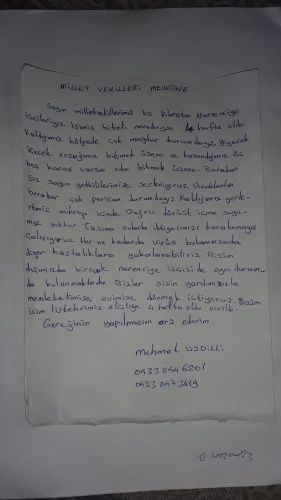 MİLLET VEKİLLERİ MECLİSİNE
Sayın milletvekillerimiz biz kıbrıta Narenciye
işcileriyiz. İşimiz biteli neredeyse 4 hafte oldu.
Kaldığımız bölgede çok mağdur durumdayız. Yiyecek
içecek erzağımız bitmek üzere ve kazandığımız üç
beş kuruş varsa oda bitmek üzere. Buradan
Siz sayın yetkililerimize sesleniyoruz. Çocuklarla
beraber çok perişan durumdayız. Kaldığımız yerle-
rimiz mikrop içinde Doğru dürüst içme suyu-
muz yoktur Taşıma sularla ihtiyacımızı karşılamaya
Çalışıyoruz. Her ne kadarda virüs bulunmasada
diğer hastalıklara yakalanabiliriz. Bizim
dışımızda birçok narenciye işçiside aynı durum-
da bulunmaktadır. Bizler sizin yardımınızla
memleketimize, evimize dönmek istiyoruz. Bizim
isim listelerimiz elçiliğe 4 hafta oldu verildi.
Gereğinin yapılmasını arz ederim.
Mehmet
0533 894 6201
0533 8973419